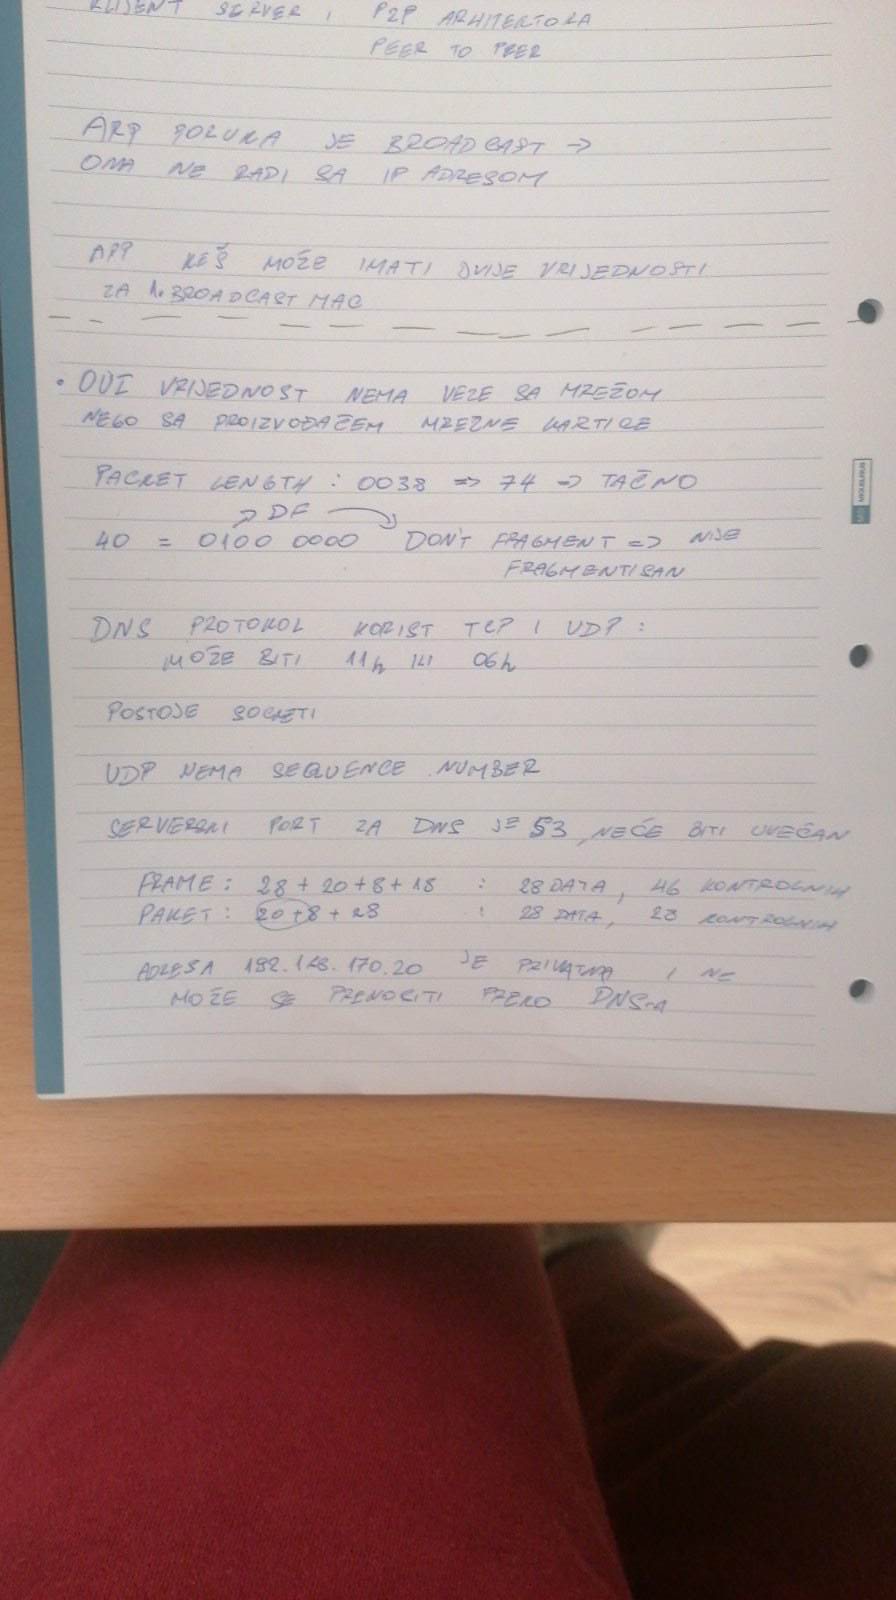 KLIJENT SERVER I P2P ARHITEKTORA
PEER TO PEER
ARP PORUKA JE BROADCAST →
ONA NE RADI SA IP ADRESOM
ARP KEŠ MOŽE IMATI DVIJE VRIJEDNOSTI
ZA 1. BROADCAST MAC
• OUI VRIJEDNOST NEMA VEZE SA MREŽOM
NEGO SA PROIZVOĐAČEM MREŽNE KARTICE
PACKET LENGTH : 0038 => 74 => TAČNO
→ DF
40 = 0100 0000 DON'T FRAGMENT => NIJE
FRAGMENTISAN
DNS PROTOKOL KORIST TCP I UDP :
MOŽE BITI 11h ILI 06h
POSTOJE SOCKETI
UDP NEMA SEQUENCE NUMBER
SERVERSKI PORT ZA DNS JE 53, NEĆE BITI UVEĆAN
FRAME : 28 + 20 + 8 + 18 : 28 DATA, 46 KONTROLNIH
PAKET : 20 + 8 + 28 : 28 DATA, 28 KONTROLNIH
ADRESA 192.168.170.20 JE PRIVATNA I NE
MOŽE SE PRENOSITI PREKO DNS-A